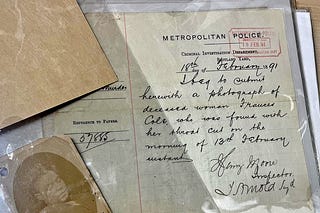 METROPOLITAN POLICE.
CRIMINAL INVESTIGATION DEPARTMENT,
SCOTLAND YARD,
18th day of February 1891
I beg to submit
herewith a photograph of
deceased woman Frances
Cole who was found with
her throat cut on the
morning of 13th February
instant.
Henry Moore
Inspector.
T Arnold Supd
Murder
REFERENCE TO PAPERS.
57885